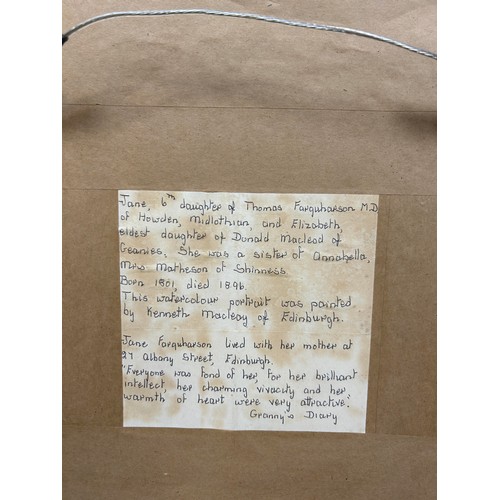 Jane, 6th daughter of Thomas Farquharson M.D
of Howden, Midlothian and Elizabeth,
eldest daughter of Donald Macleod of
Geanies. She was a sister of Annabella,
Mrs Matheson of Shinness.
Born 1801, died 1896.
This watercolour portrait was painted
by Kenneth Macleay of Edinburgh.
Jane Farquharson lived with her mother at
27 Albany Street, Edinburgh.
"Everyone was fond of her, for her brilliant
intellect, her charming vivacity and her
warmth of heart were very attractive."
Granny's Diary